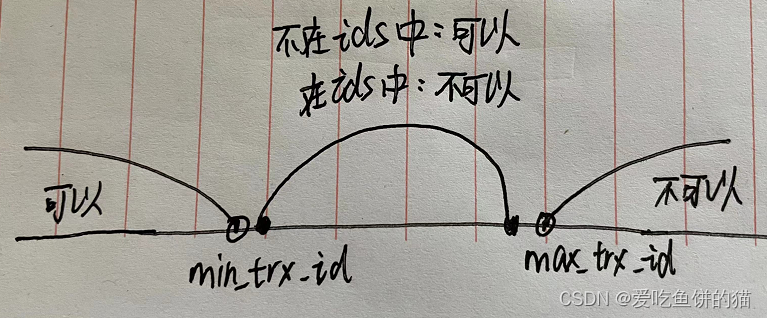 不在ids中：可以
在ids中：不可以
可以
不可以
min_trx_id
max_trx_id
CSDN @爱吃鱼饼的猫